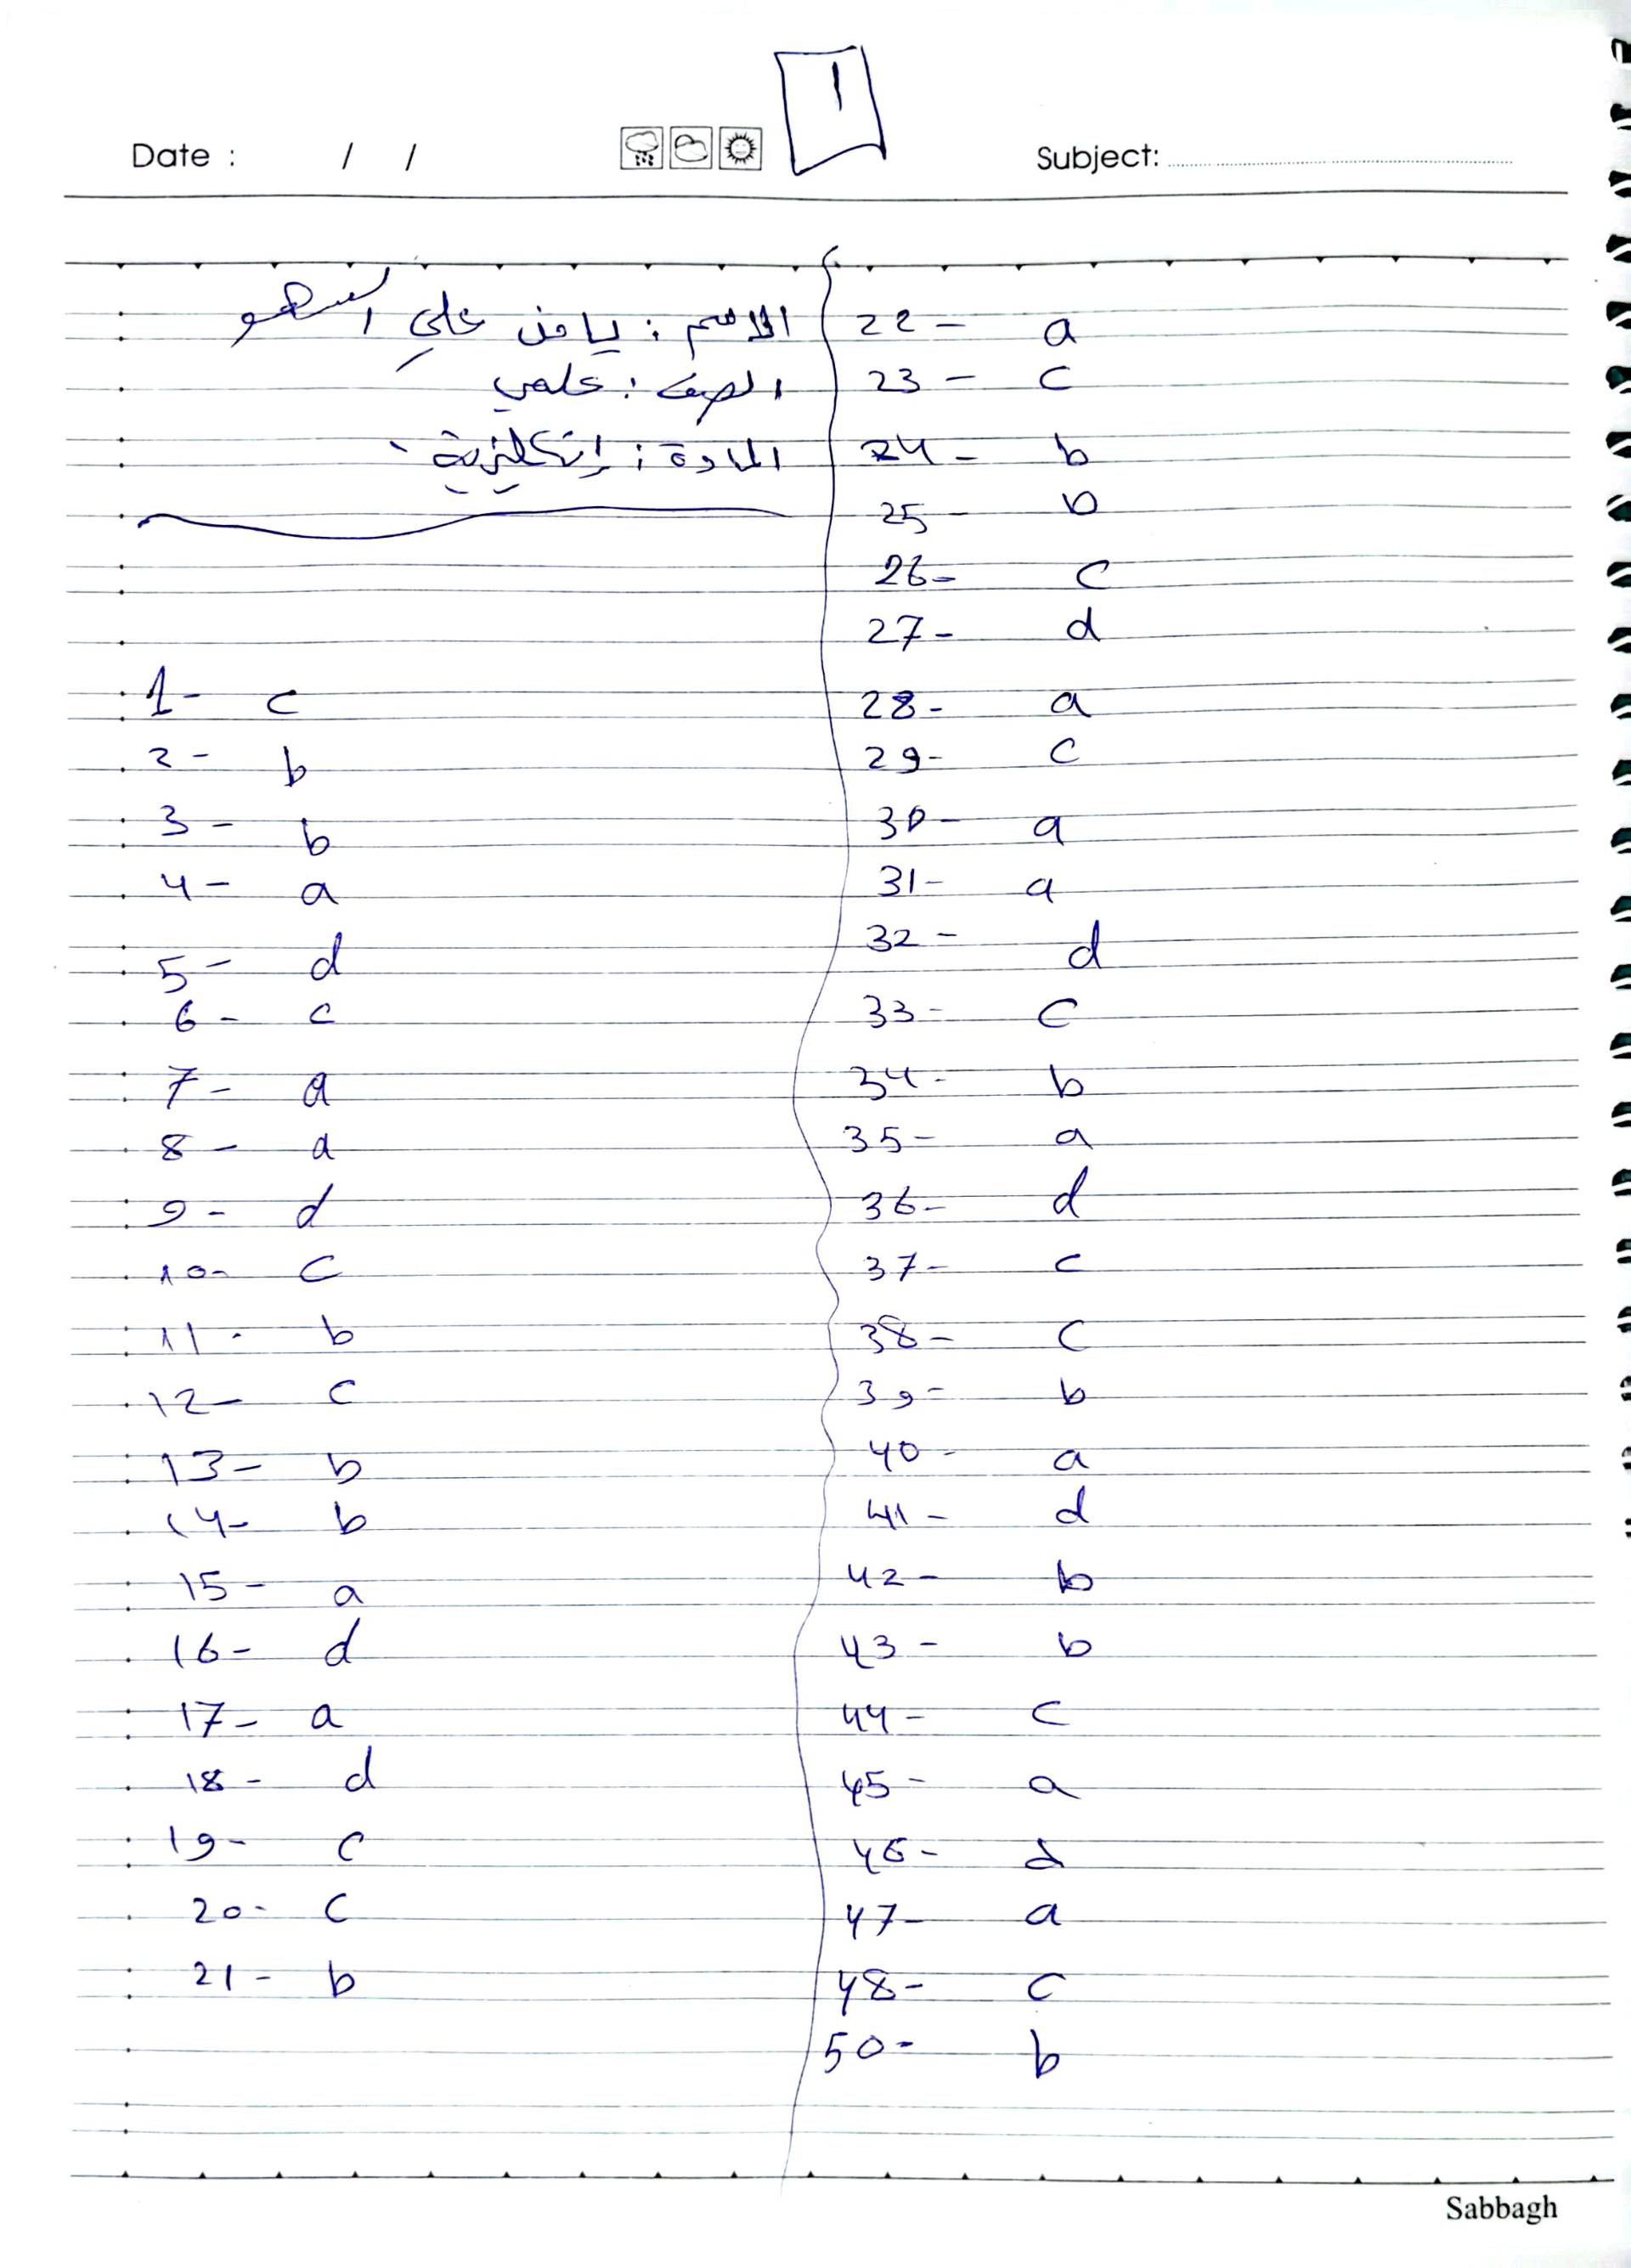 1
Date : / /
Subject:
الاسم : يامن علي
الصف : علمي
المادة : إنكليزية
1- c
2- b
3- b
4- a
5- d
6- c
7- a
8- d
9- d
10- c
11- b
12- c
13- b
14- b
15- a
16- d
17- a
18- d
19- c
20- c
21- b
22- a
23- c
24- b
25- b
26- c
27- d
28- a
29- c
30- a
31- a
32- d
33- c
34- b
35- a
36- d
37- c
38- c
39- b
40- a
41- d
42- b
43- b
44- c
45- a
46- d
47- a
48- c
50- b
Sabbagh